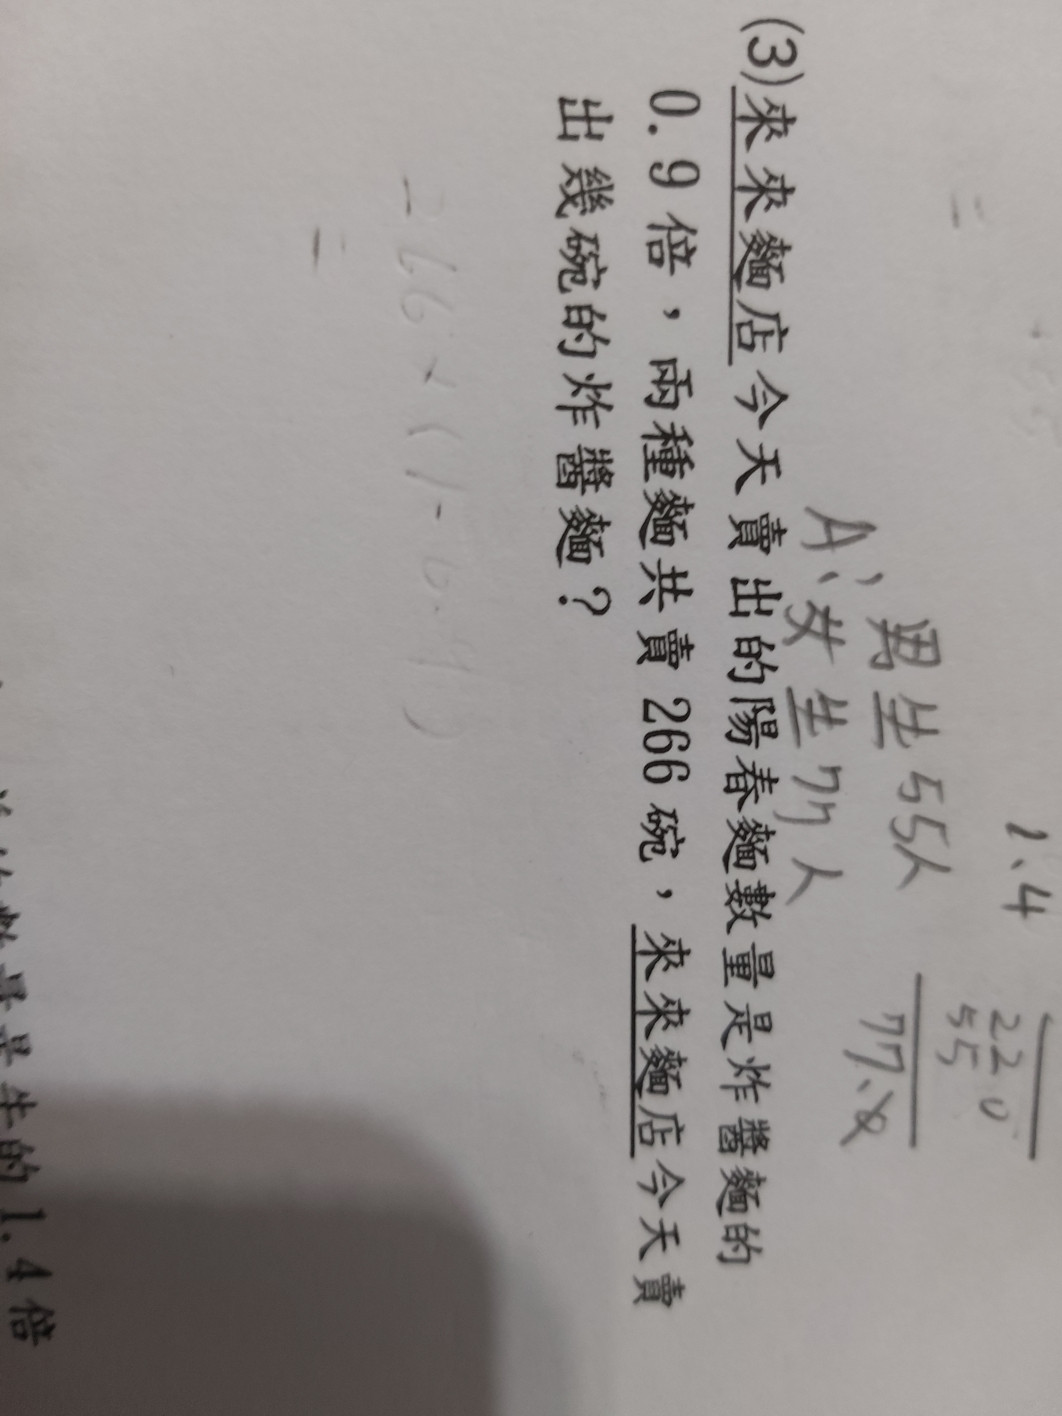 1.4
220
55
77.0
男生55人
A、女生77人
(3)來來麵店今天賣出的陽春麵數量是炸醬麵的
0.9倍,兩種麵共賣266碗,來來麵店今天賣
出幾碗的炸醬麵?
=
數量是牛的1.4倍